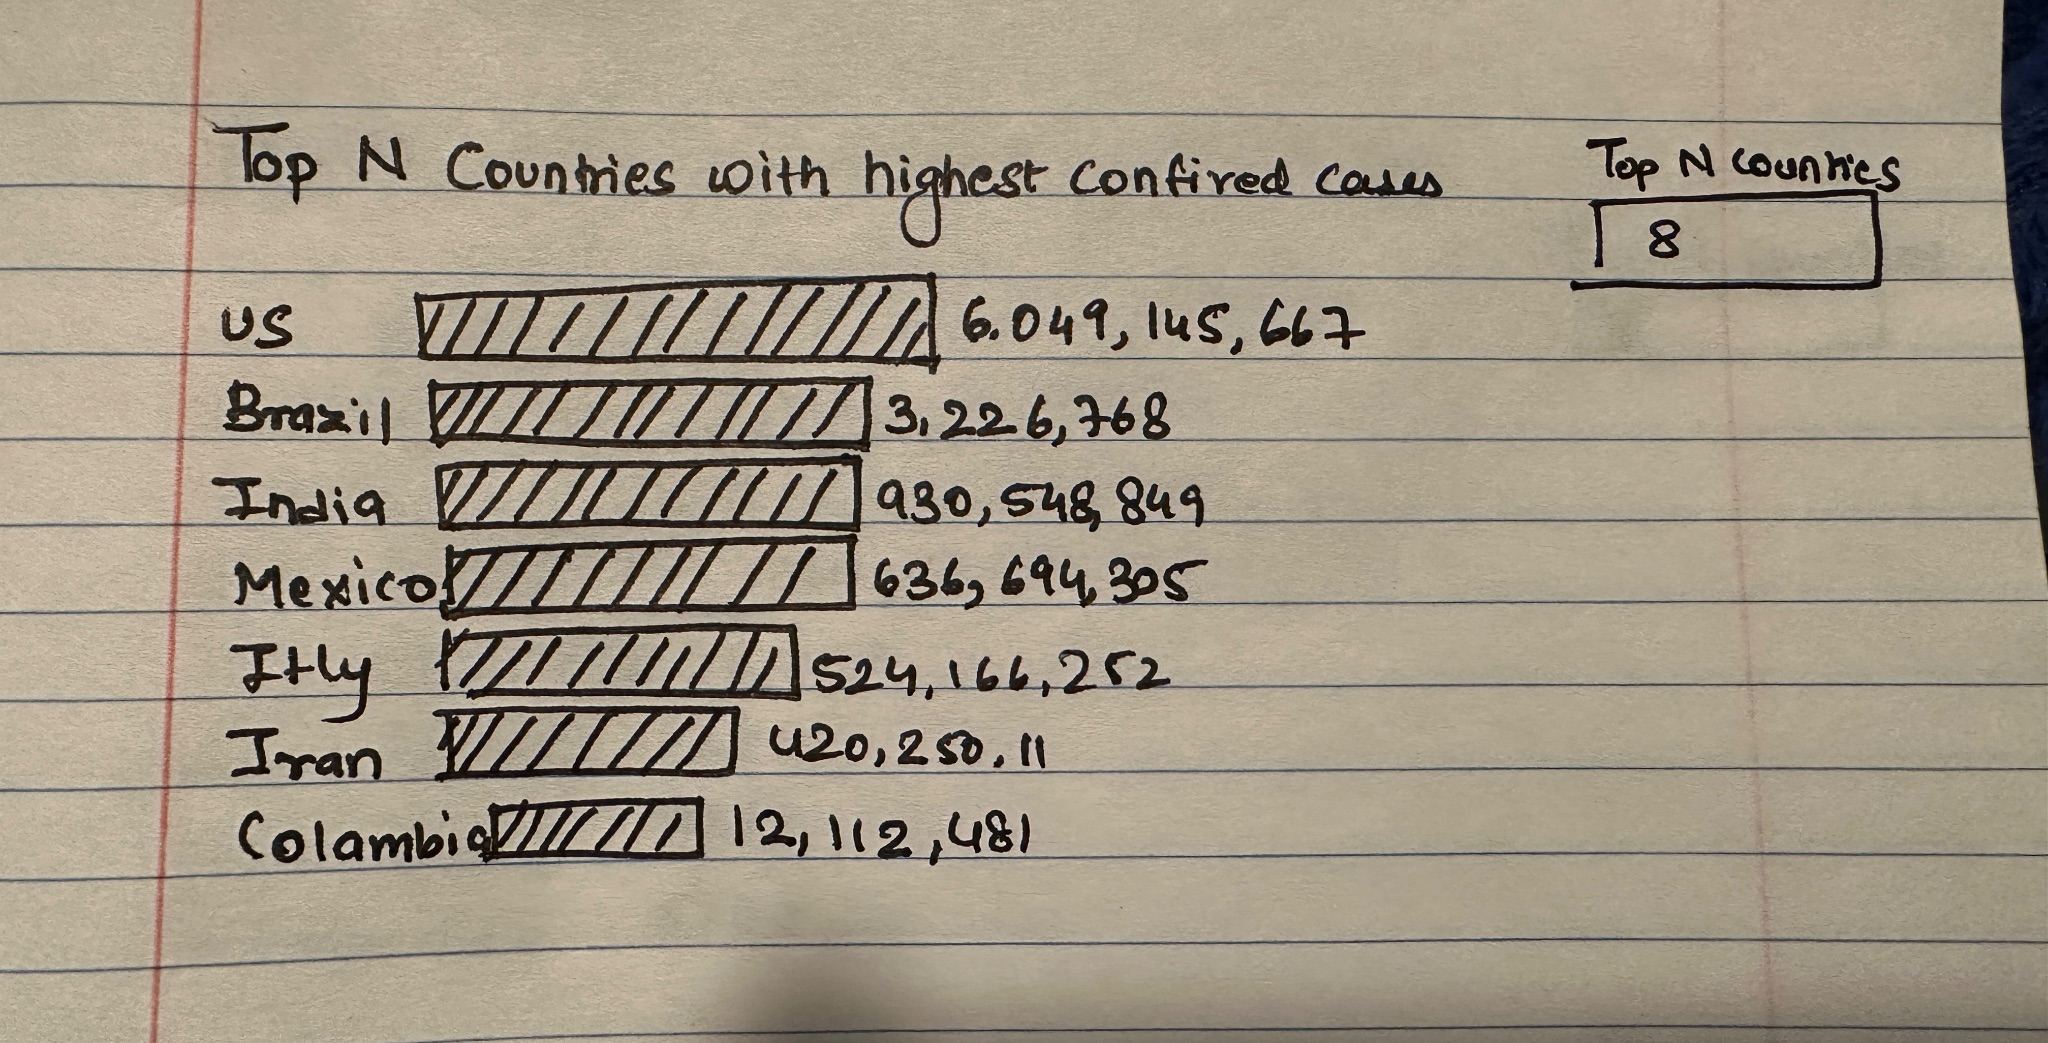 Top N Countries with highest confired cases
Top N countries
8
US 6.049,145,667
Brazil 3,226,768
India 930,548,849
Mexico 636,694,305
Itly 524,166,252
Iran 420,250.11
Colambia 12,112,481